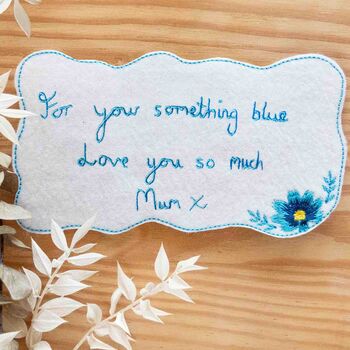 For your something blue
Love you so much
Mum X